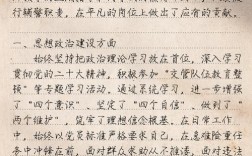 行辅警职责，在平凡的岗位上做出了应有的贡献。
一、思想政治建设方面
始终坚持把政治理论学习放在首位，深入学习
贯彻党的二十大精神，积极参加“交警队伍教育整
顿”等专题学习活动，通过系统学习，进一步增强
了“四个意识”、坚定了“四个自信”、做到了“
两个维护”，筑牢了理想信念根基，在日常工作
中，始终以党员标准严格要求自己，在急难险重任
务中冲锋在前，面对群众求助从不推诿，面对违法